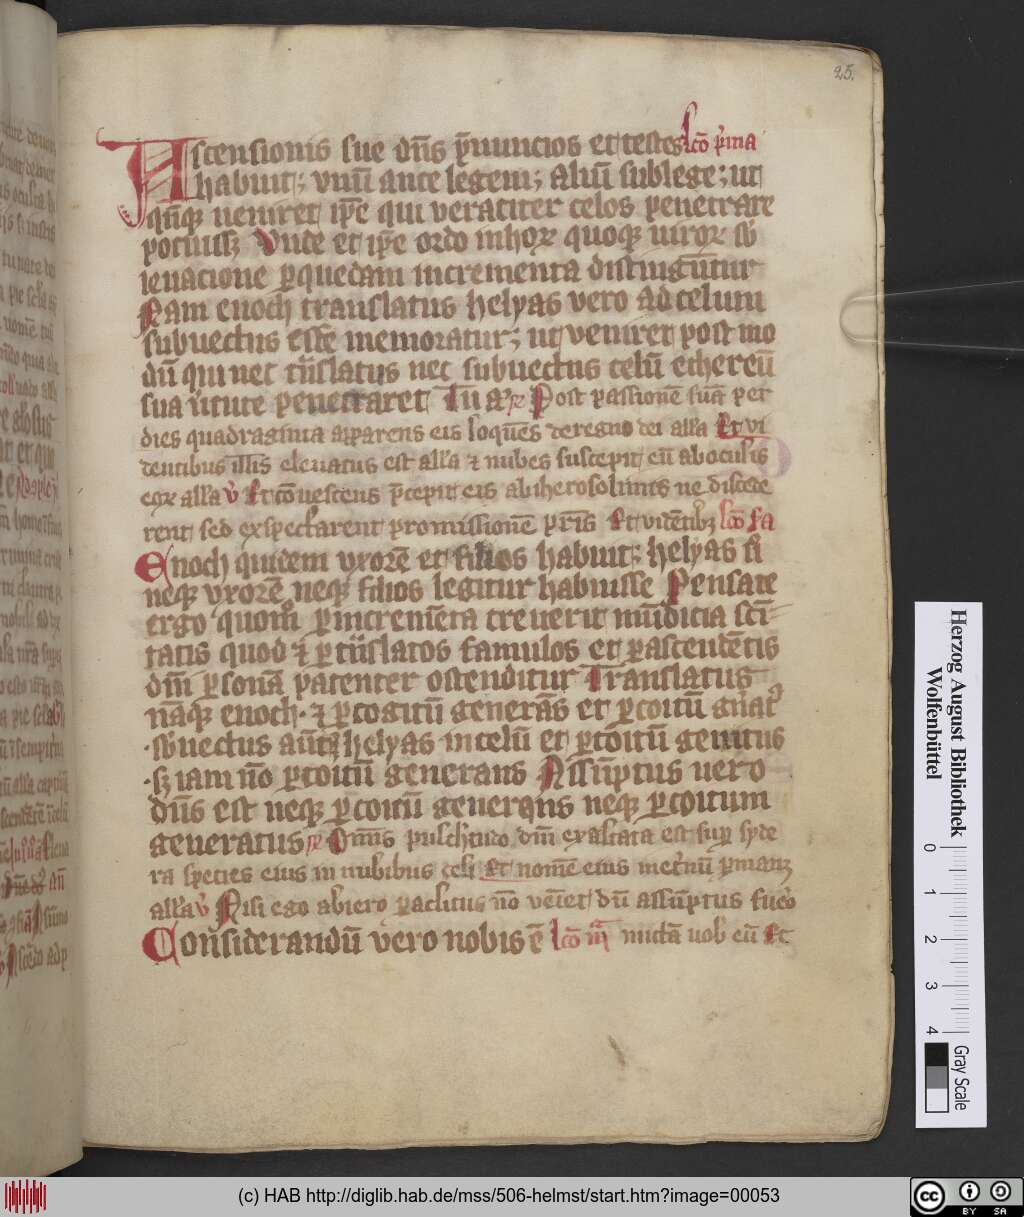 25.
Ascensionis sue dn̄s p̄nuncios et testes lc̄o p̄ma
habuit; vnū ante legem; aliū sub lege; ut
qn̄qꝫ veniret ip̄e qui veraciter celos penetrare
potuissꝫ Vnde et ip̄e ordo in hoꝝ quoqꝫ uiroꝝ sb̄
leuacione ꝑ quedam incrementa distinguūtur
Nam enoch translatus helyas vero ad celum
subuectus esse memoratur; ut veniret post mo
dū qui nec trīslatus nec subuectus celū ethereū
sua ūtute penetraret Tu aꝫ ꝶ Post passionē suā per
dies quadraginta apparens eis loquēs de regno dei alla Et vi
dentibus illis eleuatus est alla ⁊ nubes suscepit eū ab oculis
eoꝝ alla v̄ Et cōuescens p̄cepit eis ab iherosolimis ne discede
rent sed exspectarent promissionē pr̄is Et vidētibꝫ lc̄o ẜa
Enoch quidem vxorē et filios habuit; helyas si
neqꝫ vxorē neqꝫ filios legitur habuisse Pensate
ergo quom̄ ꝑ incremēta creuerit mūdicia sc̄i
tatis quod ⁊ ꝑ trīslatos famulos et ꝑ ascendētis
dn̄i ꝑsonā patenter ostenditur Translatus
nāqꝫ enoch · ⁊ ꝑ cogitū generās et ꝑ coitū gn̄at᷒
· sb̄uectus aūt helyas in celū et ꝑ coitū genitus
· sꝫ iam nō ꝑ coitū generans Assūptus vero
dn̄s est neqꝫ ꝑ coitū generans neqꝫ ꝑ coitum
generatus ꝶ Om̄is pulchtudo dn̄i exaltata est sup̄ syde
ra species eius in nubibus celi Et nomē eius in et̄nū ꝑmanꝫ
alla v̄ Nisi ego abiero ꝑaclitus nō veīet dū assūptus fuo᷒
Considerandū vero nobis ē lc̄o iij᷒ mittā uob eū Et
Herzog August Bibliothek
Wolfenbüttel
0 1 2 3 4
Gray Scale
(c) HAB http://diglib.hab.de/mss/506-helmst/start.htm?image=00053
cc BY SA